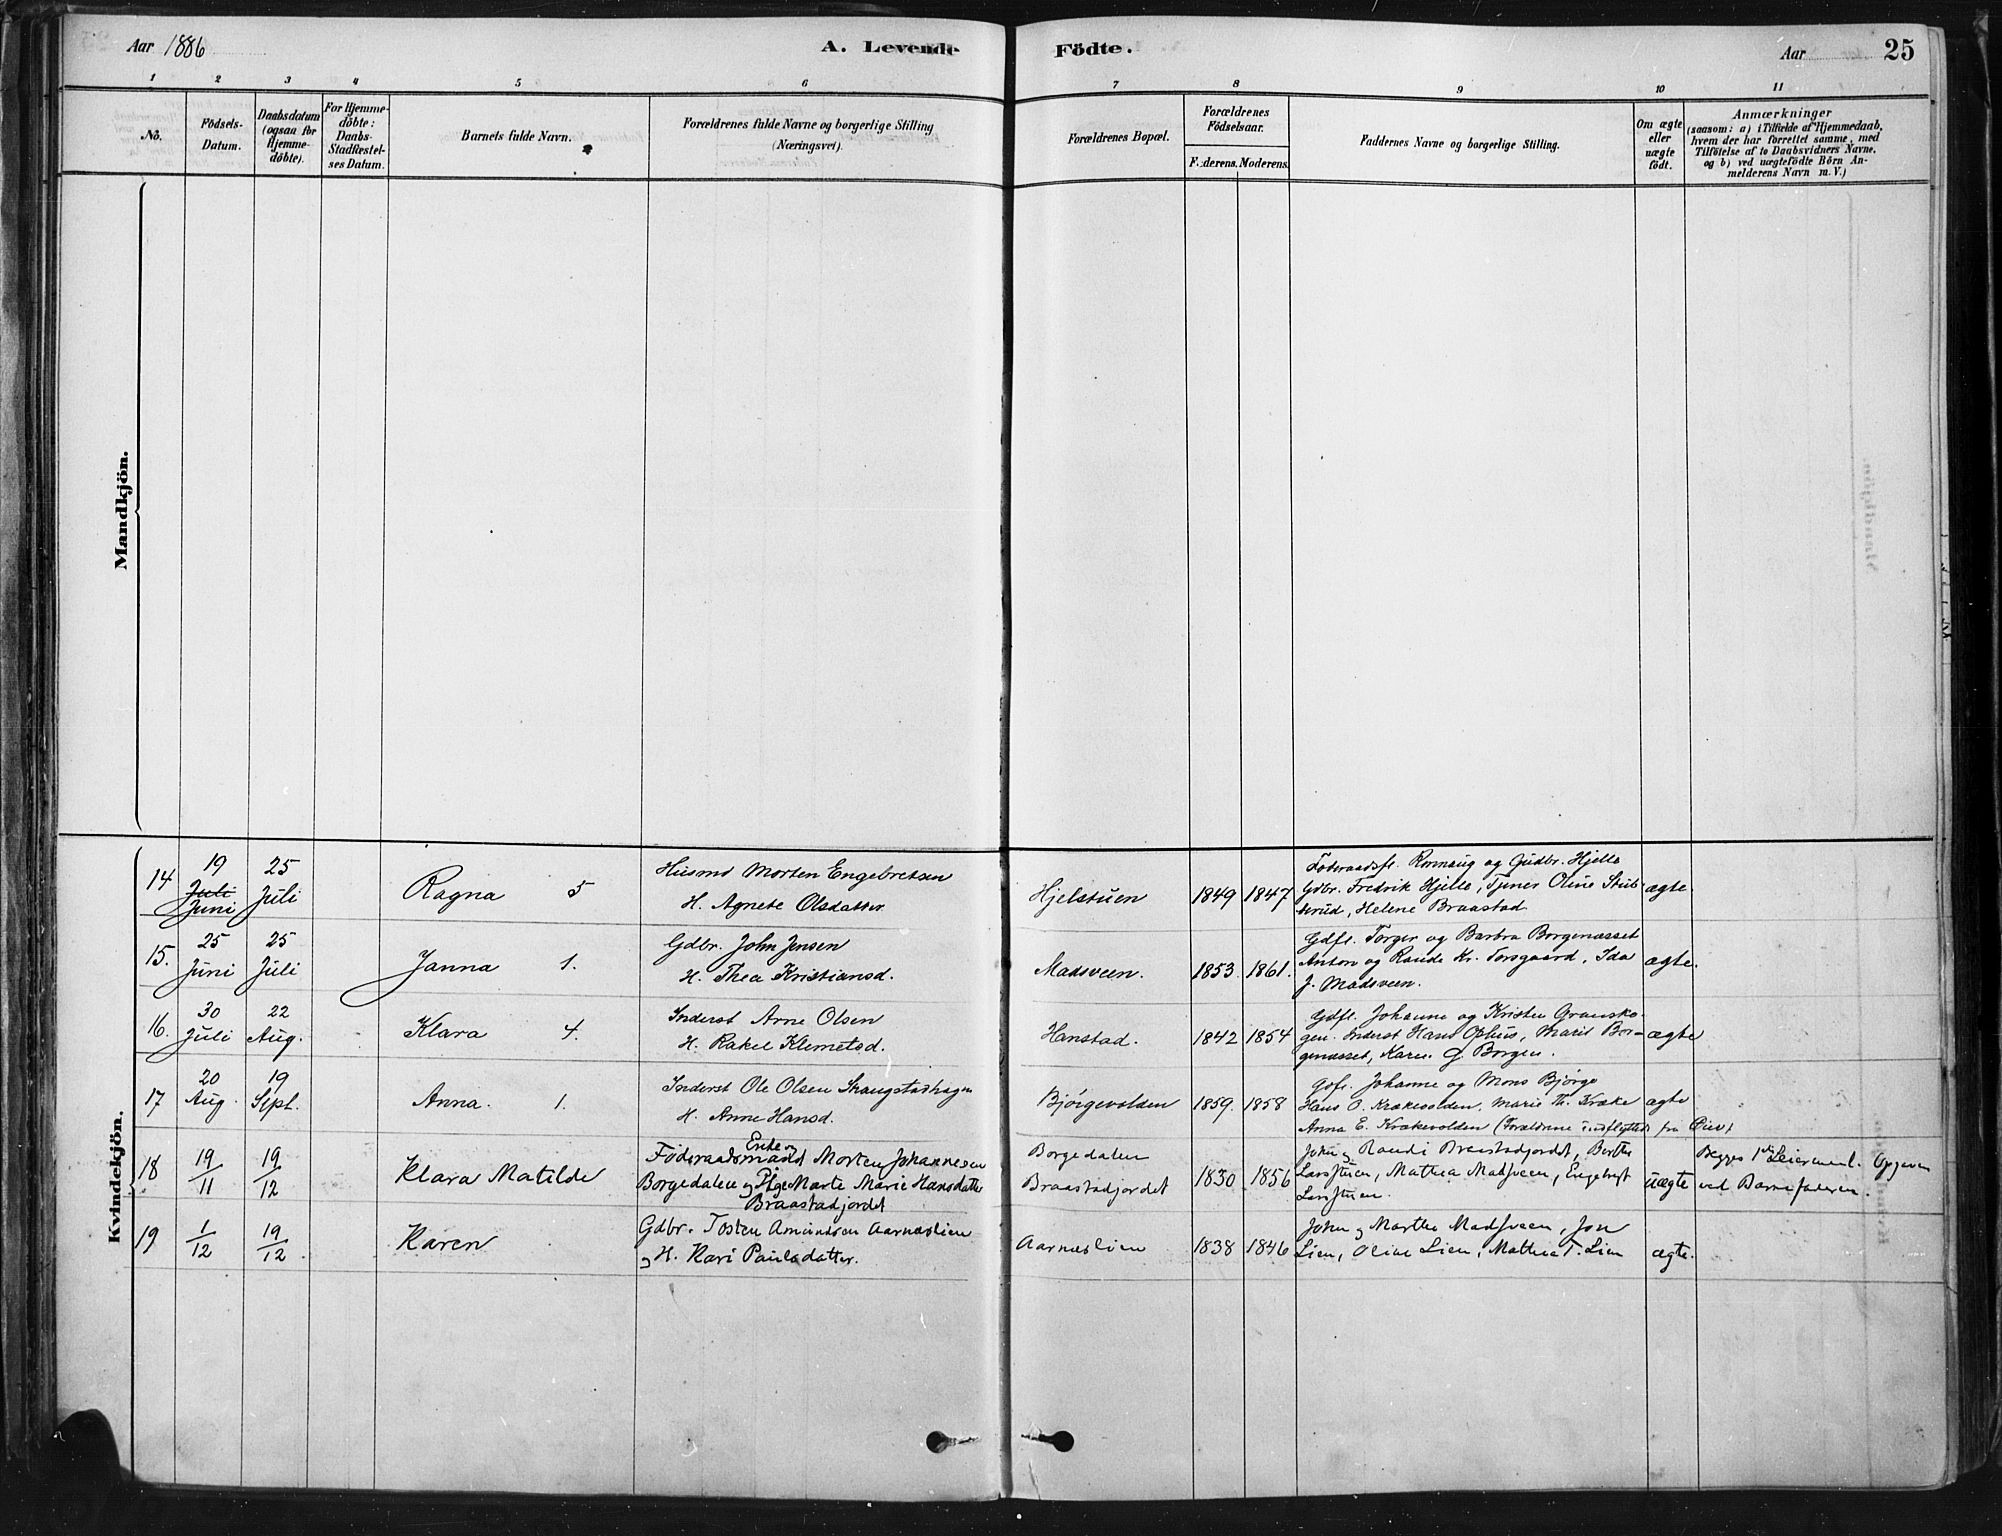 Aar 1886
A. Levende
Födte.
Aar
25
1 2 3 4 5 6 7 8 9 10 11
No.
Födsels-
Datum.
Daabsdatum
(ogsaa for
Hjemme-
döbte).
For Hjemme-
döbte:
Daabs-
Stadfæstel-
ses Datum.
Barnets fulde Navn.
Forældrenes fulde Navne og borgerlige Stilling
(Næringsvei).
Forældrenes Bopæl.
Forældrenes
Födselsaar.
Faderens. Moderens.
Faddernes Navne og borgerlige Stilling.
Om ægte
eller
uægte
födt.
Anmærkninger
(saasom: a) i Tilfælde af Hjemmedaab,
hvem der har forrettet samme, med
Tilföielse af to Daabsvidners Navne,
og b) ved uægtefödte Börn An-
melderens Navn m.V.)
Mandkjön.
Kvindekjön.
14
19
Juli
Juni
25
Juli
Ragna 5
Husmd Morten Engebretsen
H. Agnete Olsdatter
Hjelstuen
1849 1847
Föderaadsfl. Ronnaug og Gudbr. Hjelle
Gdbr. Fredrik Hjelle, Tjener Oline Stub-
berud, Helene Braastad
ægte
15.
25
Juni
25
Juli
Janna 1.
Gdbr. John Jensen
H. Thea Kristiansd.
Madsveen.
1853. 1861.
Gdfl. Torger og Barbra Borgenæsset
Anton og Rande Kr. Forsgaard, Ida
J. Madsveen.
ægte.
16.
30
Juli
22
Aug.
Klara 4.
Inderst Arne Olsen
H. Rakel Klemetsd.
Hanstad.
1842 1854
Gdfl. Johanne og Kristen Gransko-
gen. Inderst Hans Ophus, Marit Bor-
genæsset, Karen G. Borgen.
ægte
17
20
Aug.
19
Sept.
Anna. 1.
Inderst Ole Olsen Skaugstadhagen
H. Anne Hansd.
Bjørgevolden
1859. 1858
Gdfl. Johanne og Mons Bjørge
Hans O. Krækevolden, Marie Th. Kræke
Anna E. Krækevolden (Forældrene indflyttede fra Øier)
ægte
18
19/11
19/12
Klara Matilde
Enke og
Föderaadsmand Morten Johannesen
Borgedalen og Pige Marte Marie Hansdatter
Braastadjordet
Borgedalen
Braastadjordet
1830 1856
John og Randi Braastadjordet, Berthe
Larsstuen, Mathea Madsveen, Engebregt
Larsstuen.
uægte
Begges 1ste Leiermaal. Opgiven
ved Barnefaderen.
19
1/12
19/12
Karen
Gdbr. Tosten Amundsen Aarnæslien
og H. Kari Paulsdatter.
Aarnæslien
1838 1846
John og Marthe Madsveen, Jon
Lien, Oline Lien, Mathea T. Lien
ægte.